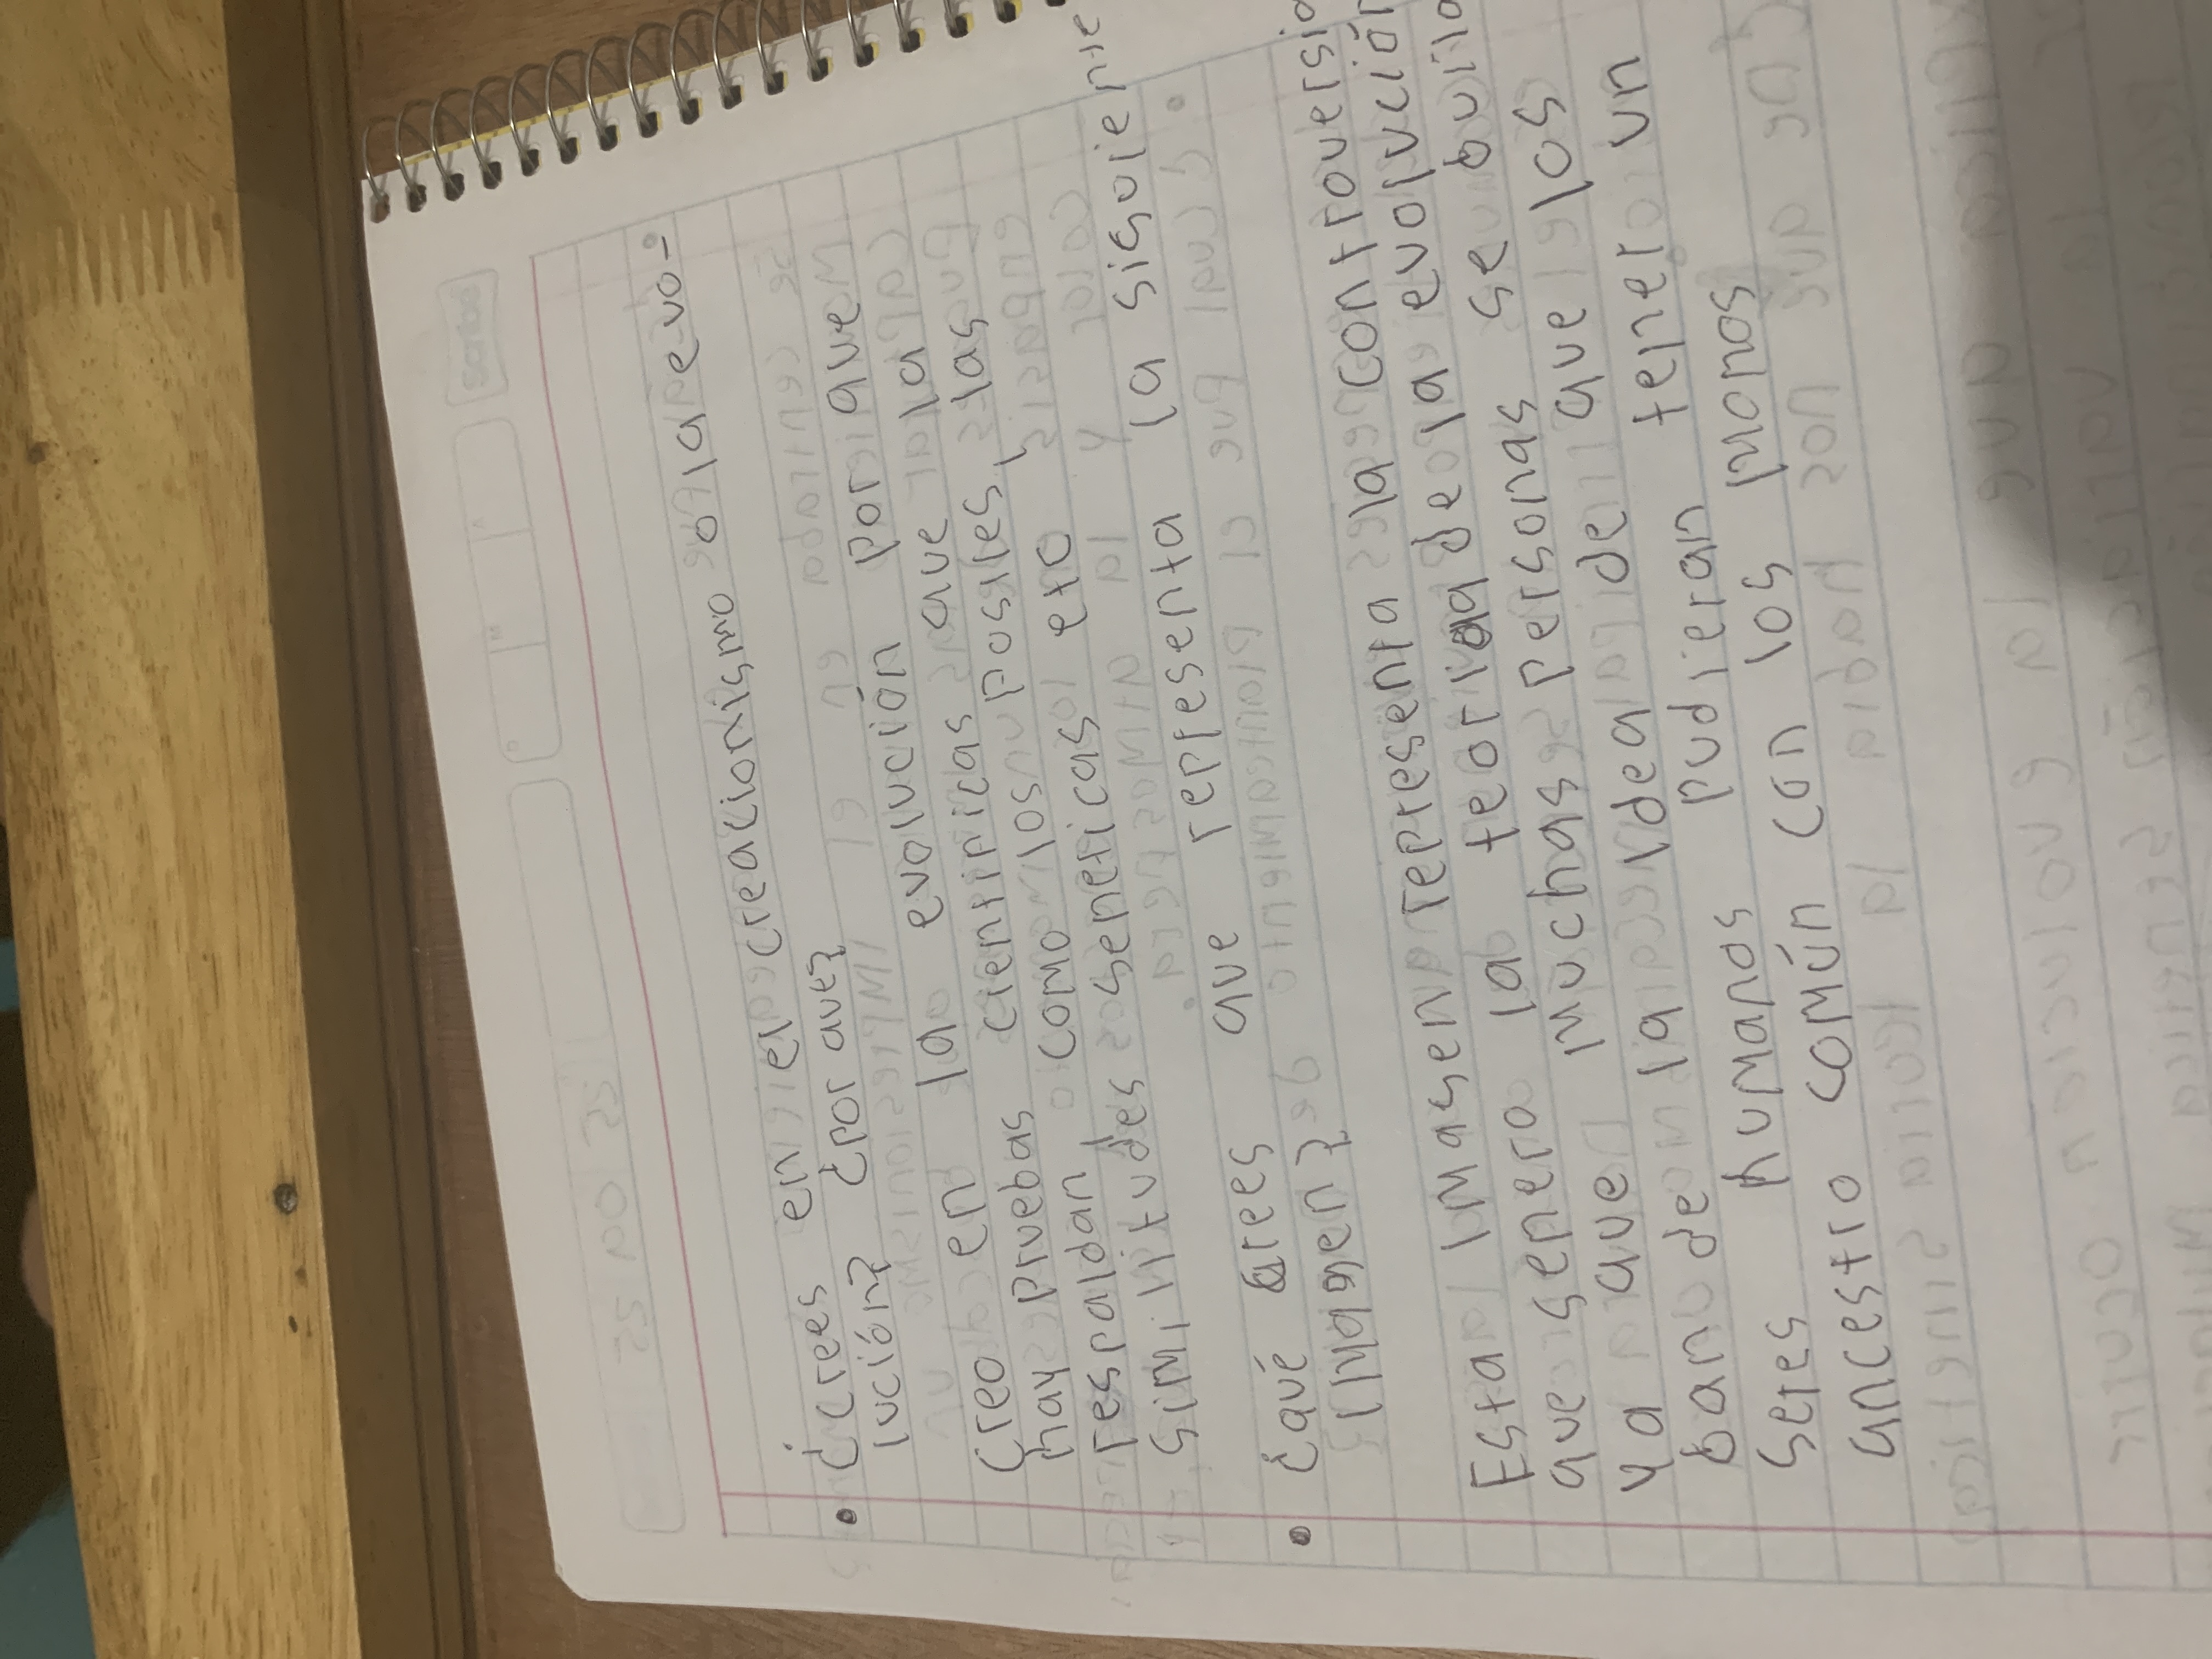 • ¿crees en el creacionismo o la evo-
lución? ¿por que?
Creo en la evolución porque
hay pruebas cientificas que la
respaldan como los fosiles, las
similitudes geneticas etc
• ¿qué crees que representa la siguiente
imagen?
Esta imagen representa la controversia
que genero la teoria de la evolución
ya que muchas personas se burla
ban de la idea de que los
seres humanos pudieran tener un
ancestro común con los monos